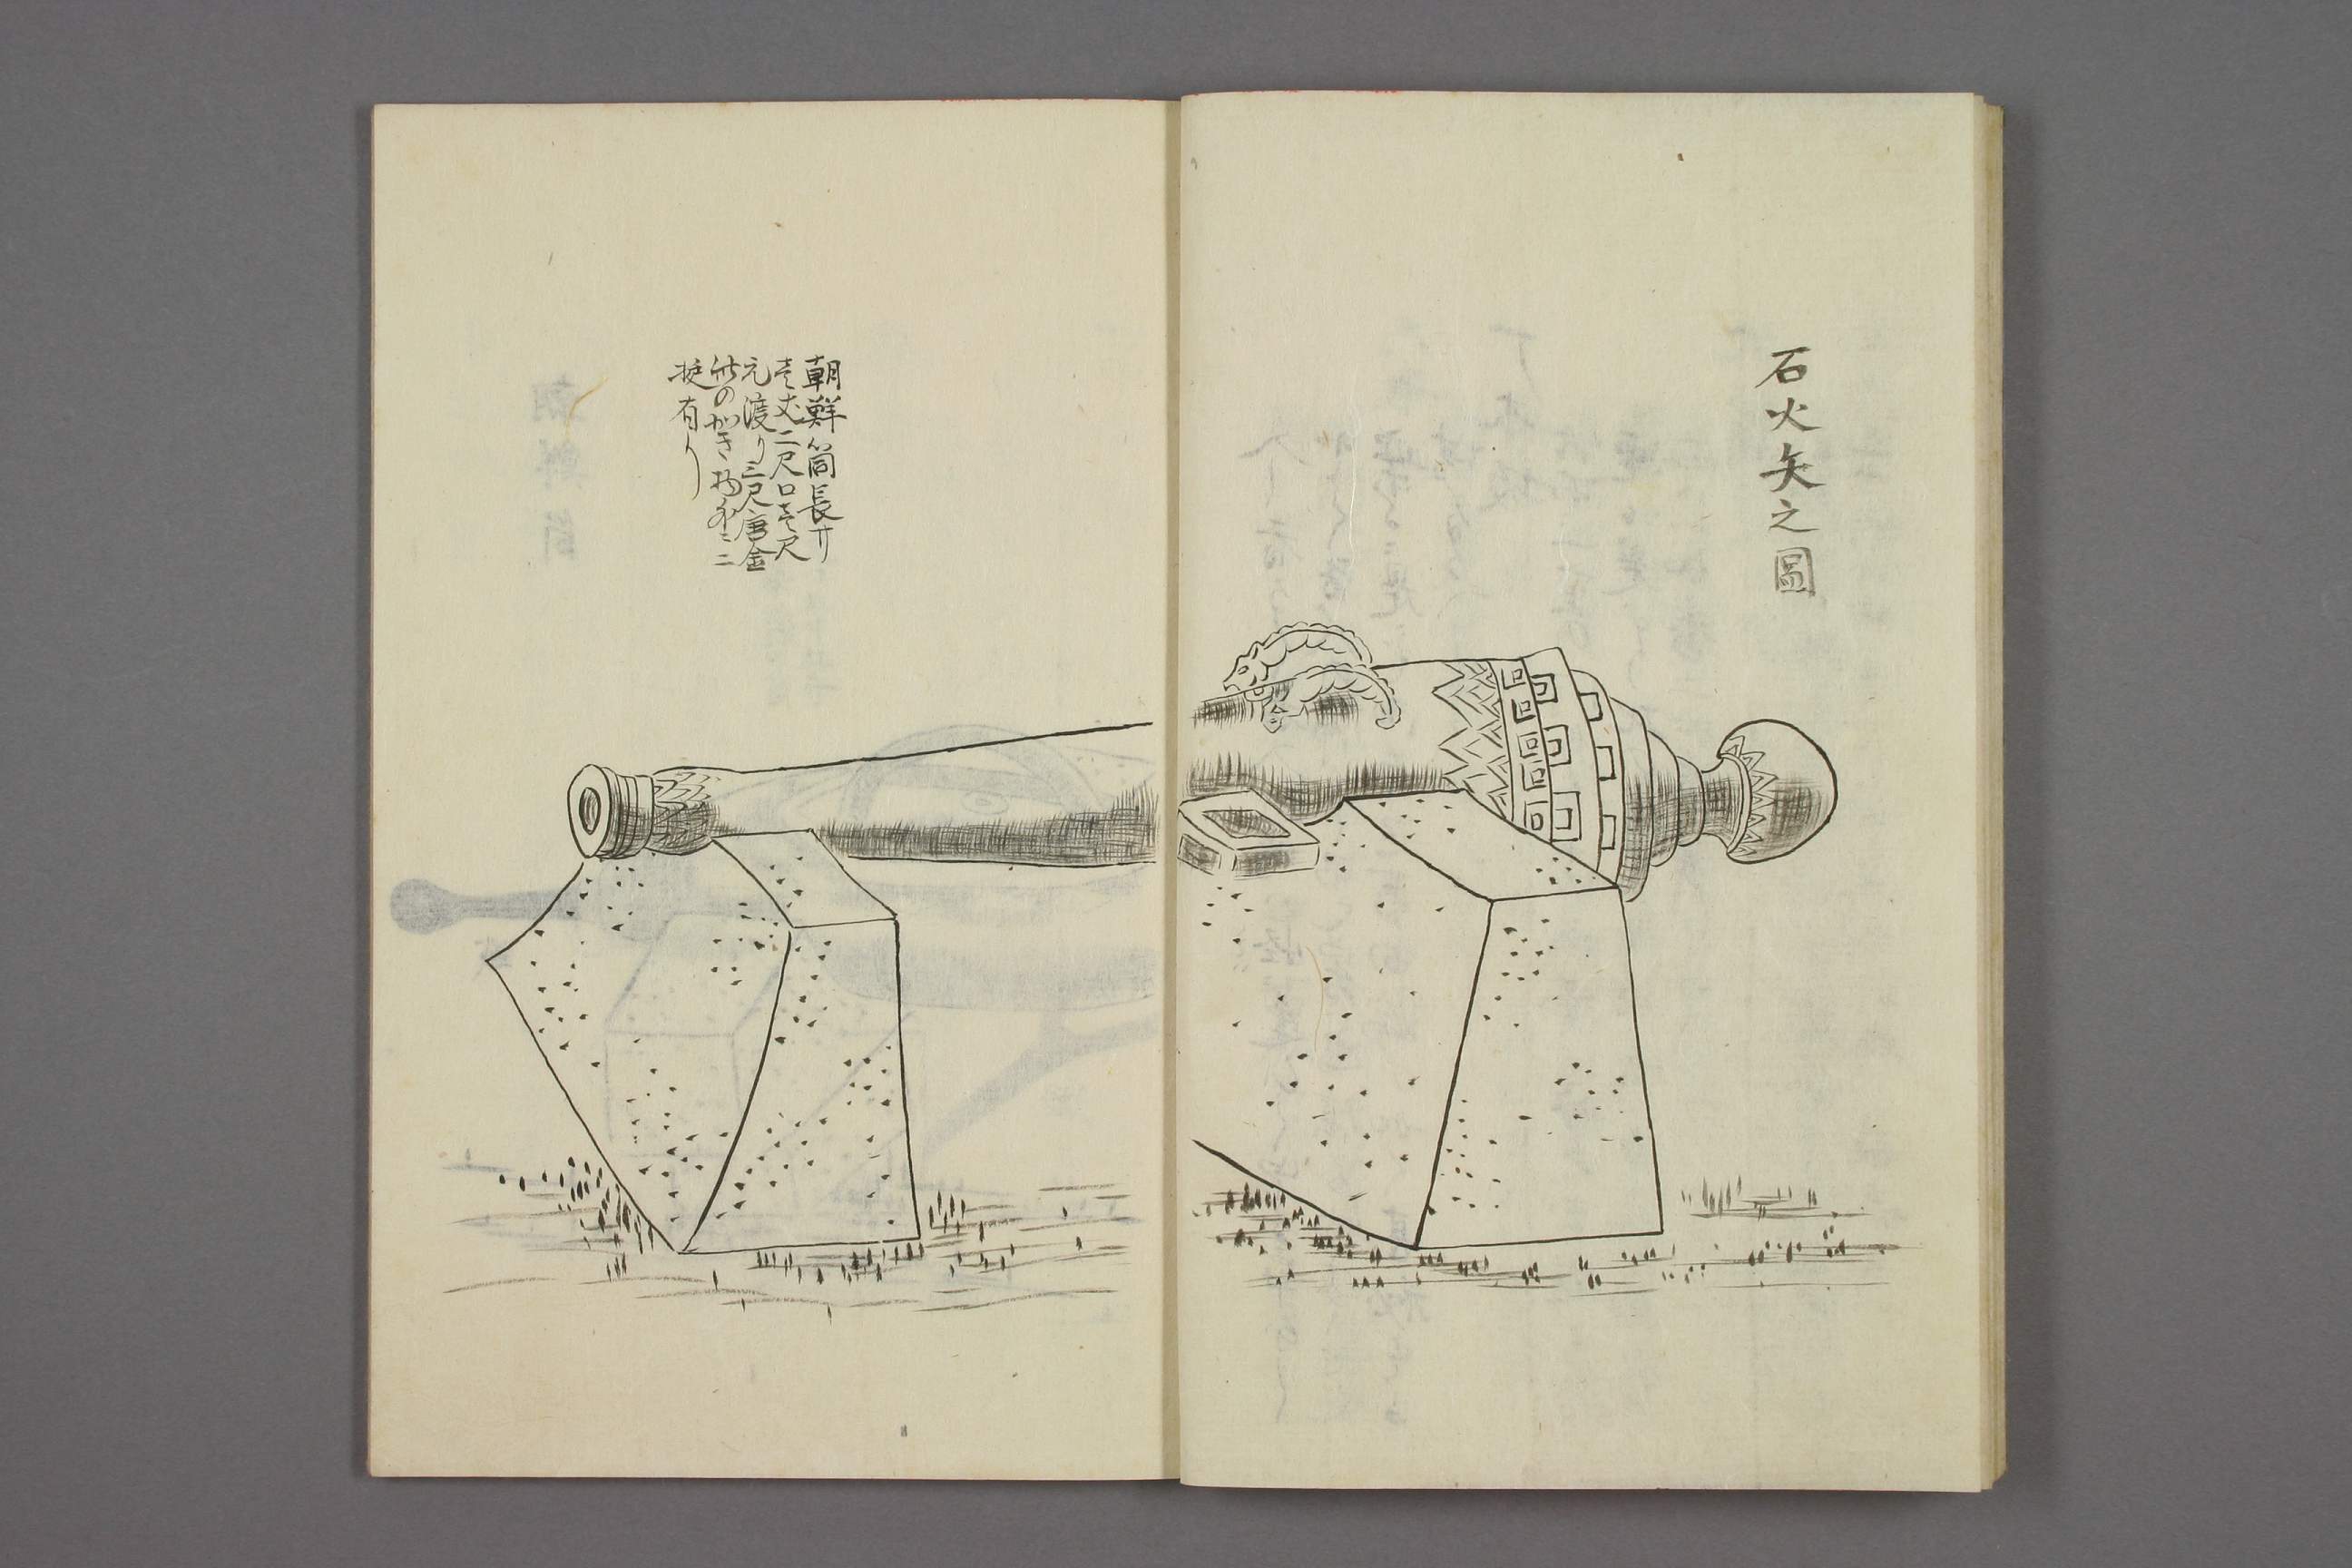 石火矢之圖
朝鮮筒長サ
壱丈二尺口壱尺
元渡り三尺唐金
此のかき物外ニ二
挺有り